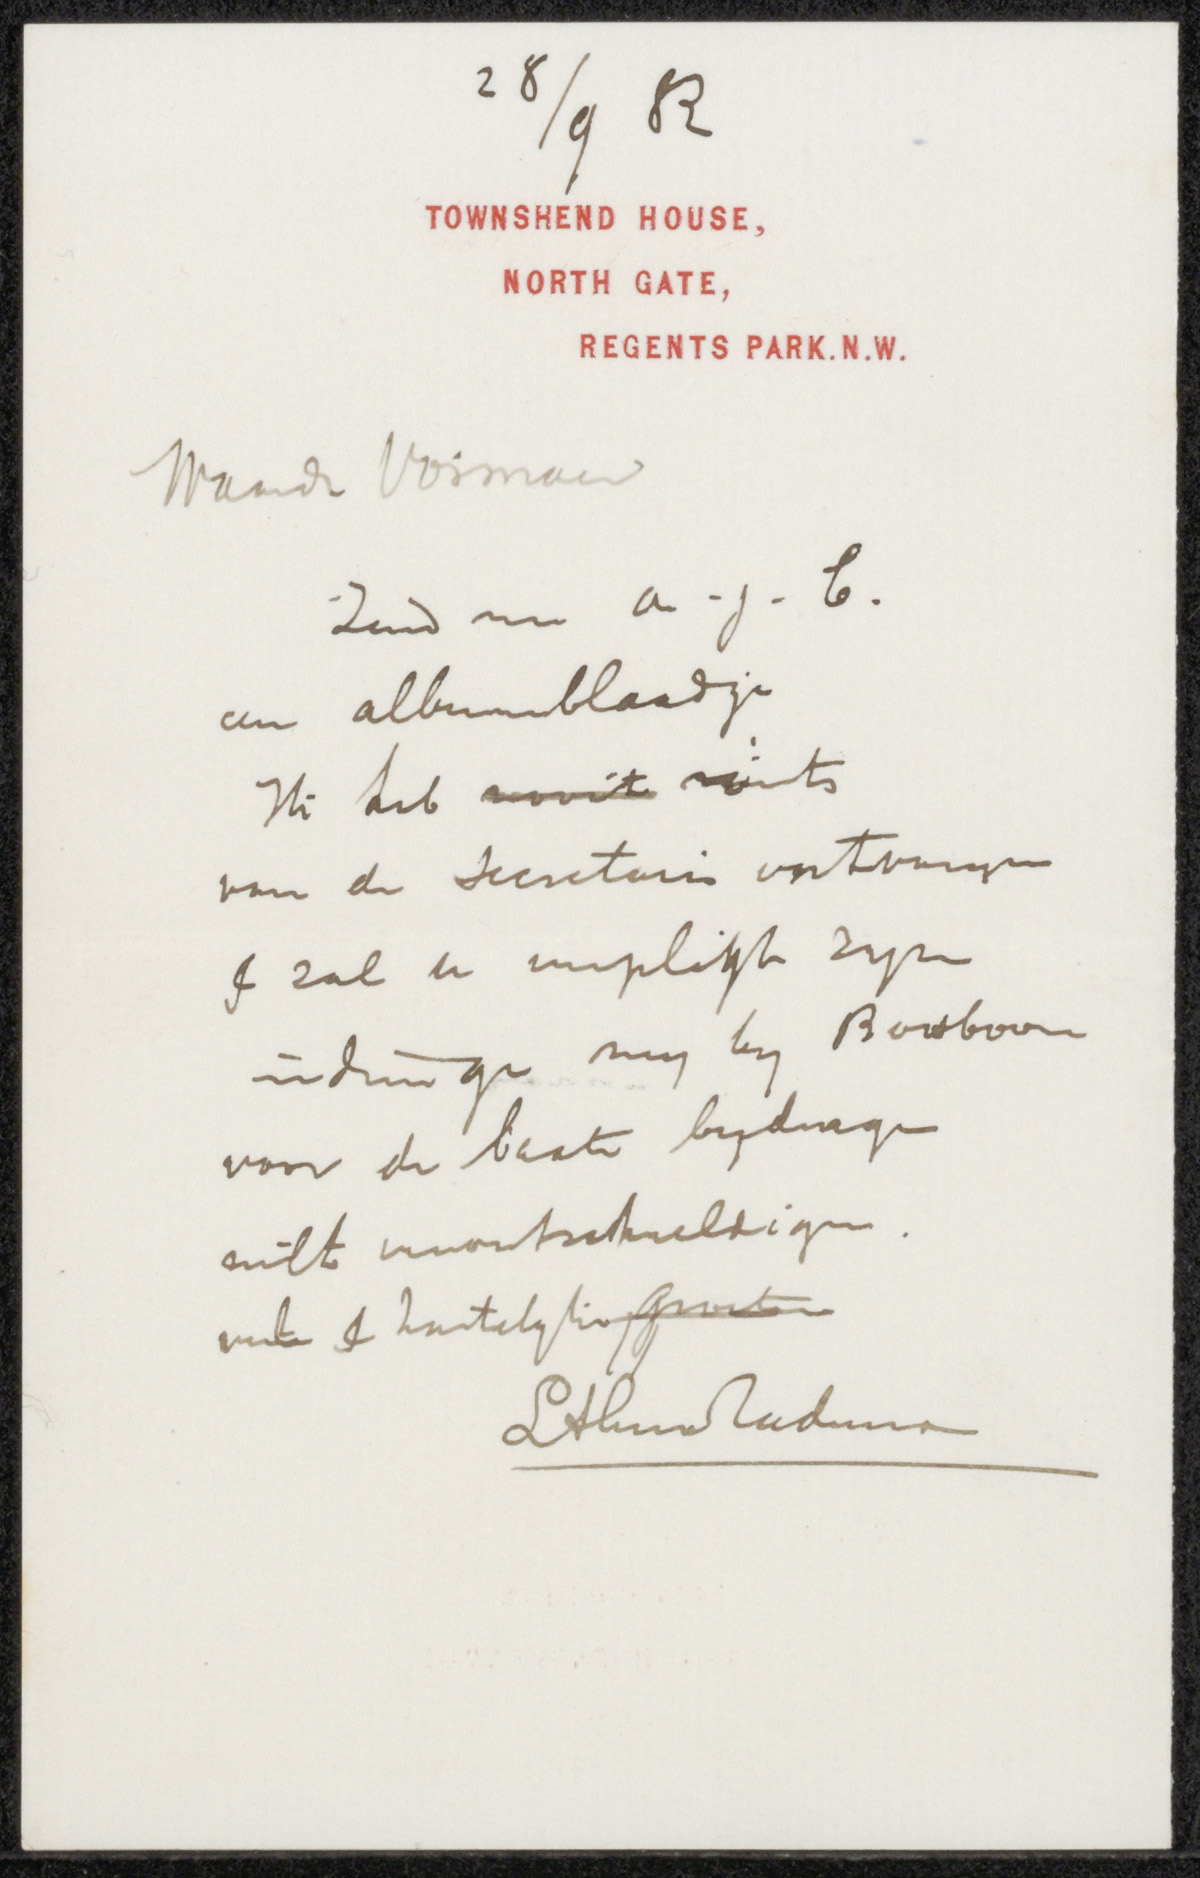 28/9 82
TOWNSHEND HOUSE,
NORTH GATE,
REGENTS PARK.N.W.
Waarde Vosmaer
Zend me a - j - b.
een albumblaadje
Ik heb nooit niets
van de secretaris ontvangen
I zal u verpligt zyn
indien ge my by Bosboom
voor de beste bydrage
wilt verontschuldigen.
vele & hartelyke groeten
L Alma Tadema